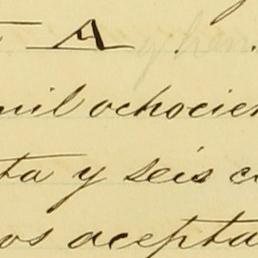 A
mil ochocien
ta y seis c
os acepta